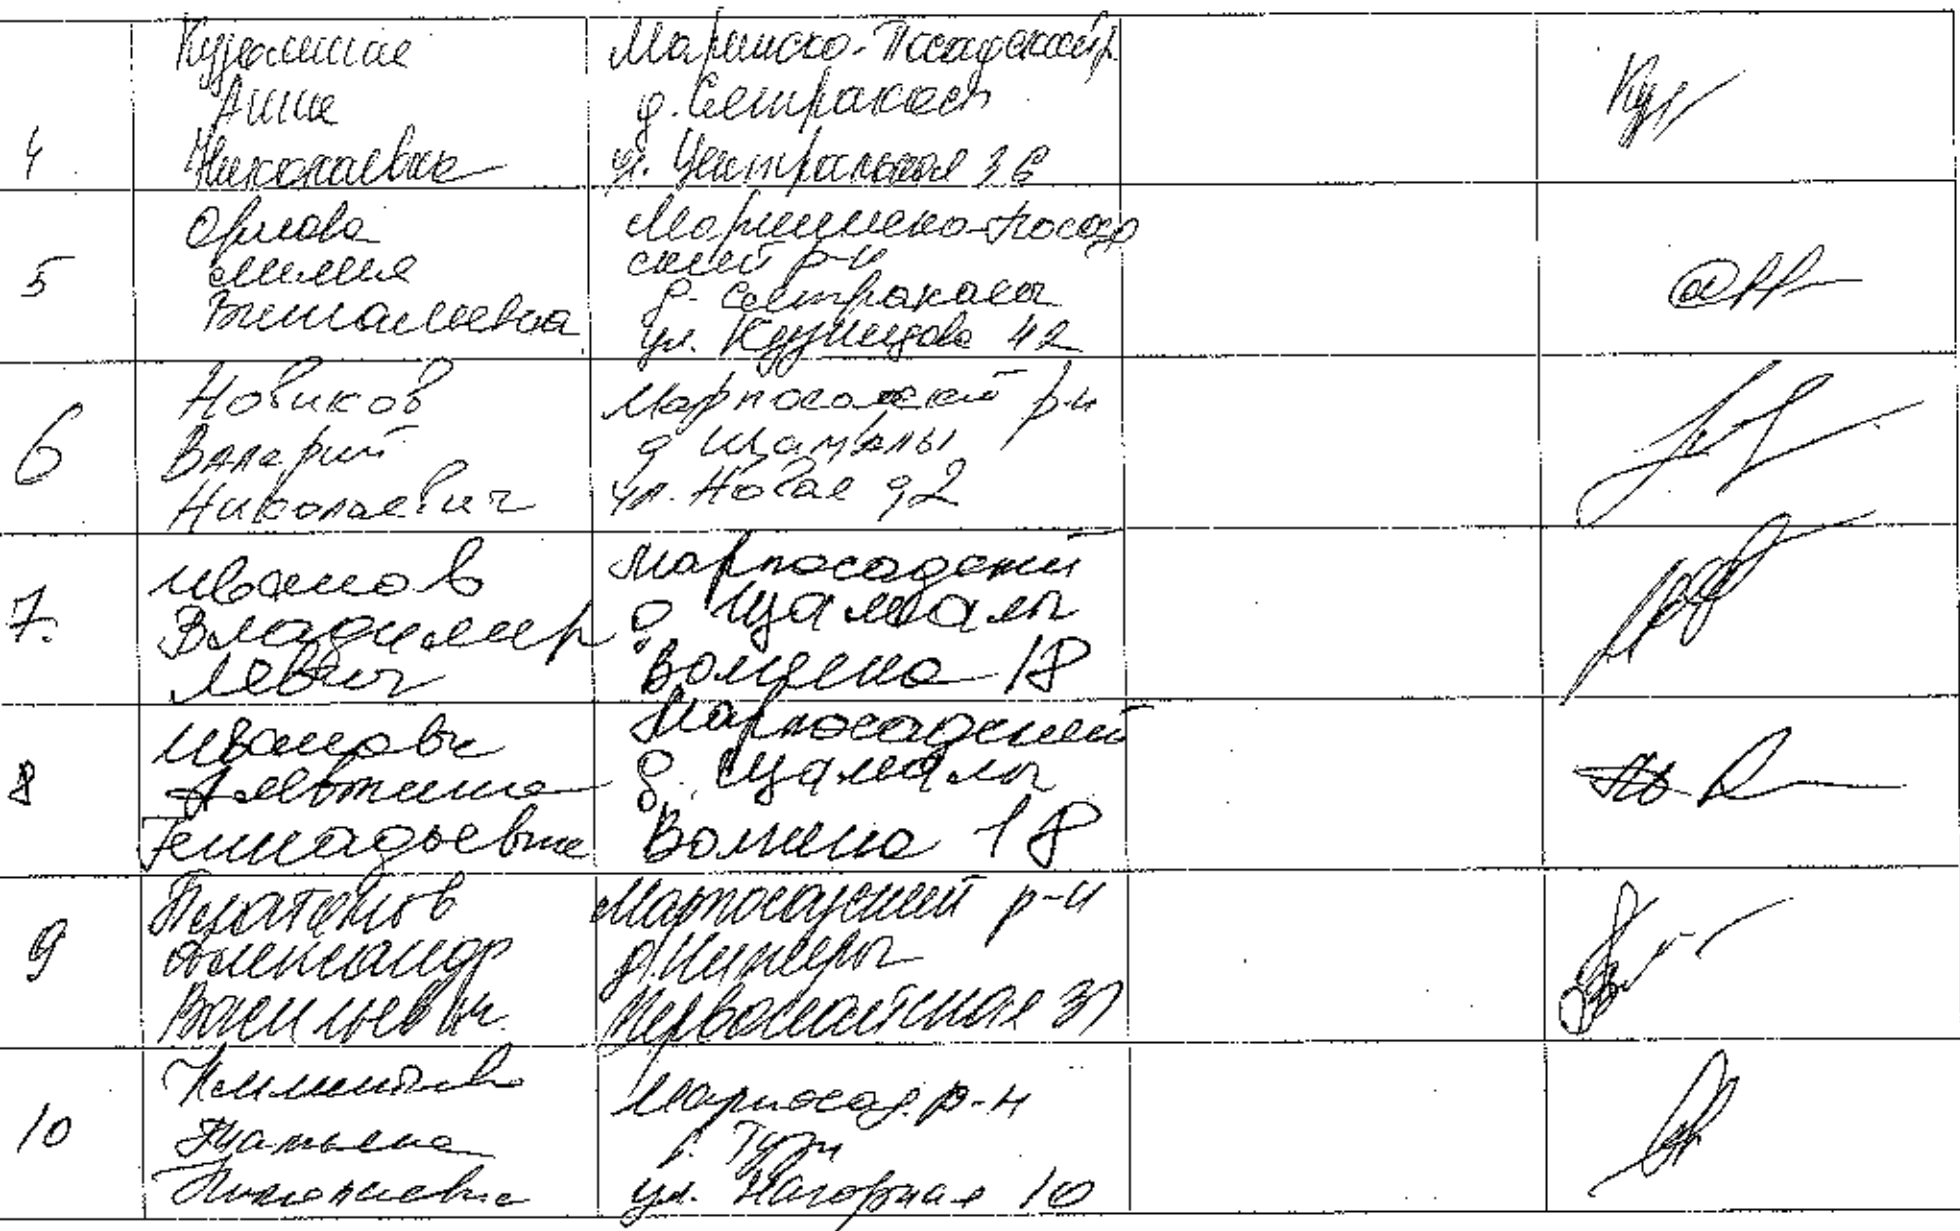 4
Анна
Николаевна
Мариинско-Посадский р.
д. Сятракасы
ул. Центральная 36
Кун
5
Орлова
Лилия
Витальевна
Мариинско-Посад
ский р-н
д. Сятракасы
ул. Кузнецова 42
6
Новиков
Валерий
Николаевич
Марпосадский р-н
д Щамалы
ул. Новая д 2
7.
Иванов
Владимир
Львович
Марпосадский
д. Щамалы
Волжская 18
8
Иванова
Алевтина
Геннадьевна
Марпосадский
д. Щамалы
18
9
Платонов
Александр
Васильевич
Марпосадский р-н
Первомайская 31
10
Татьяна
Николаевна
Марпосад. р-н
ул. Нагорная 10